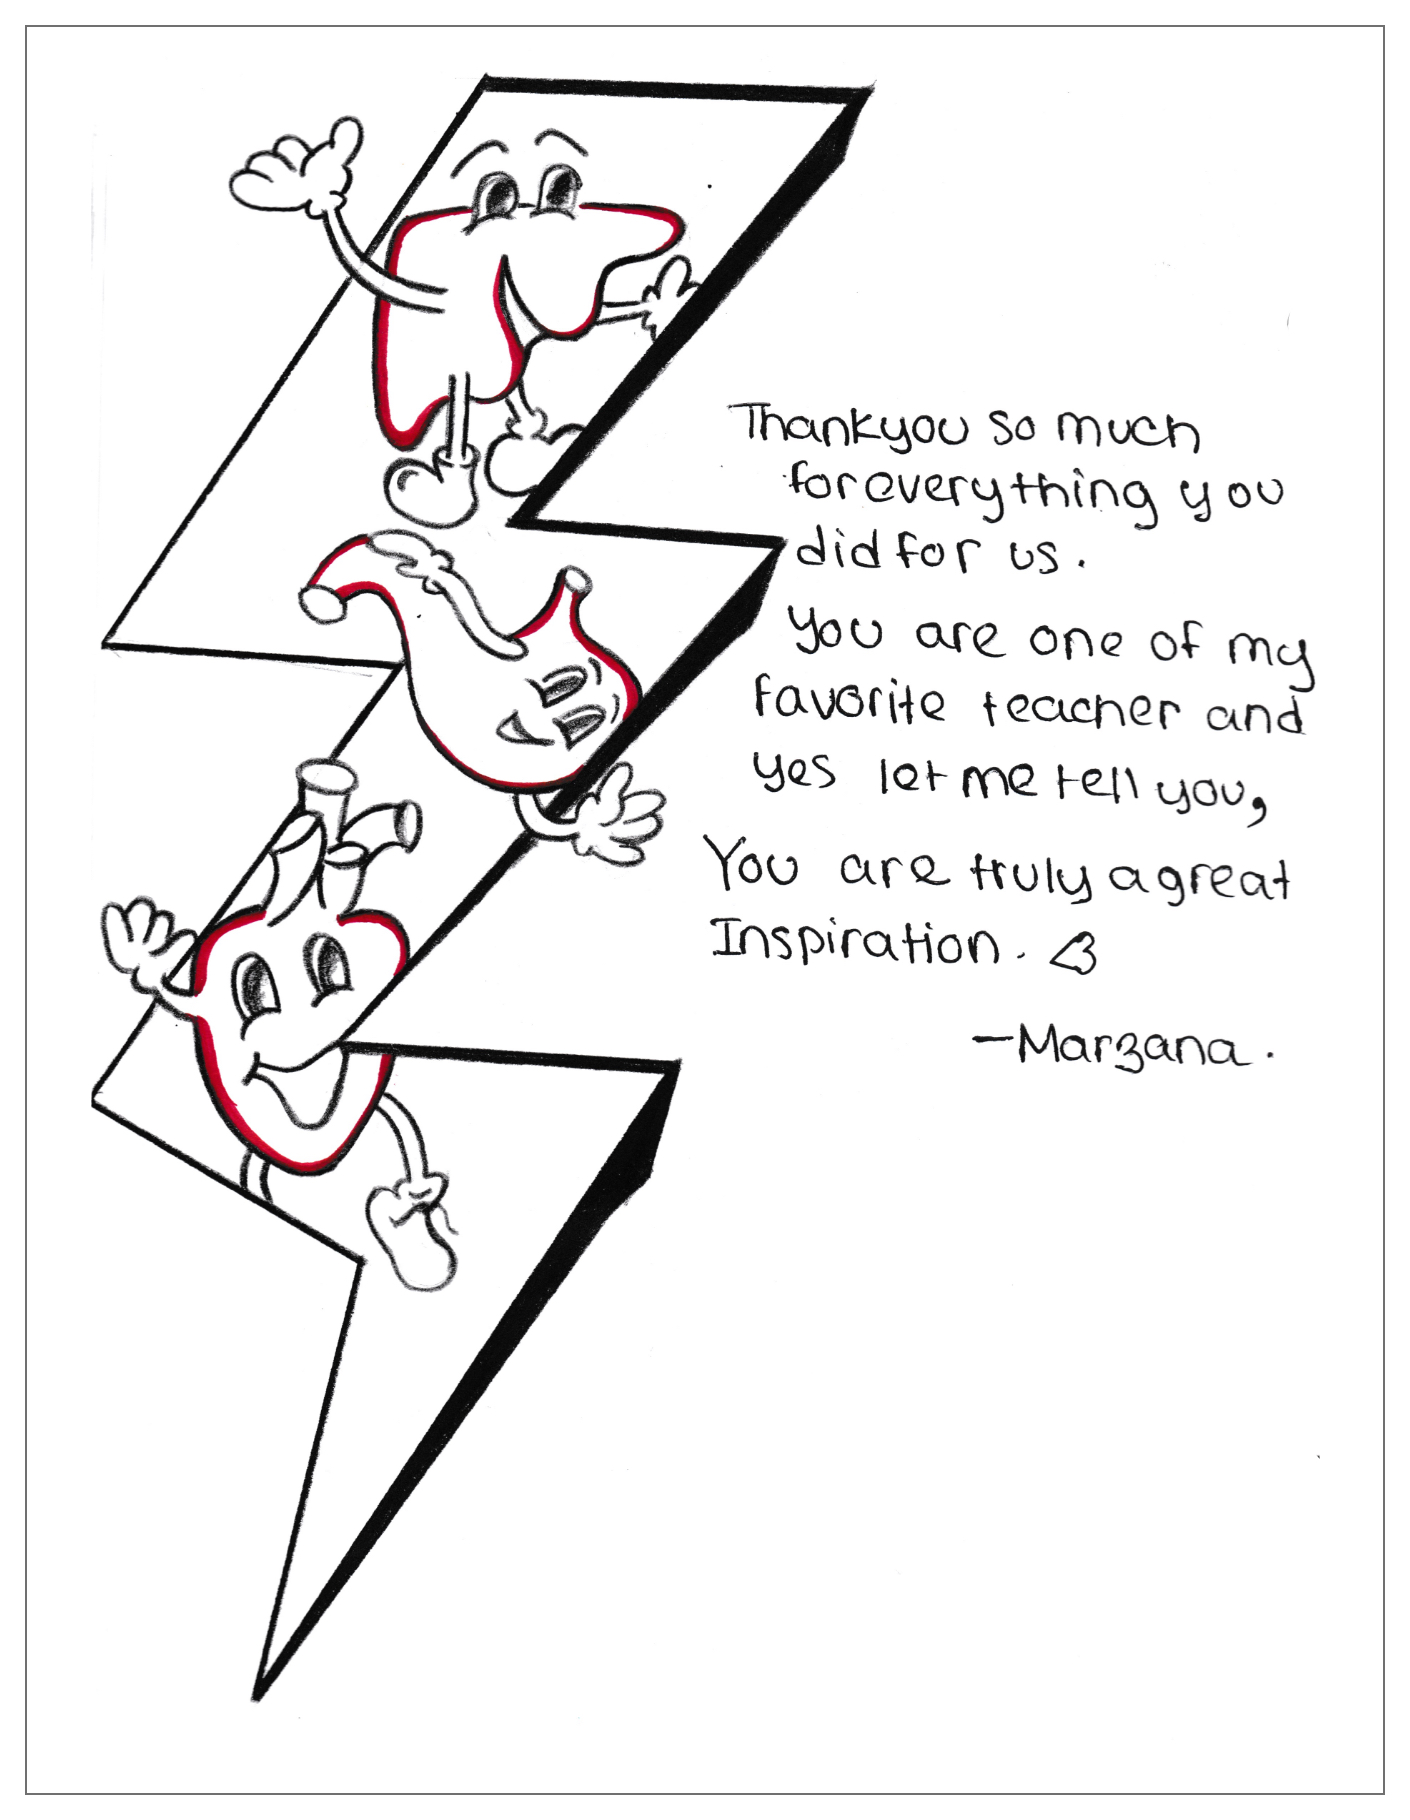 Thankyou so much
for everything you
did for us.
You are one of my
favorite teacher and
yes let me tell you,
You are truly a great
Inspiration. <3
-Marzana.